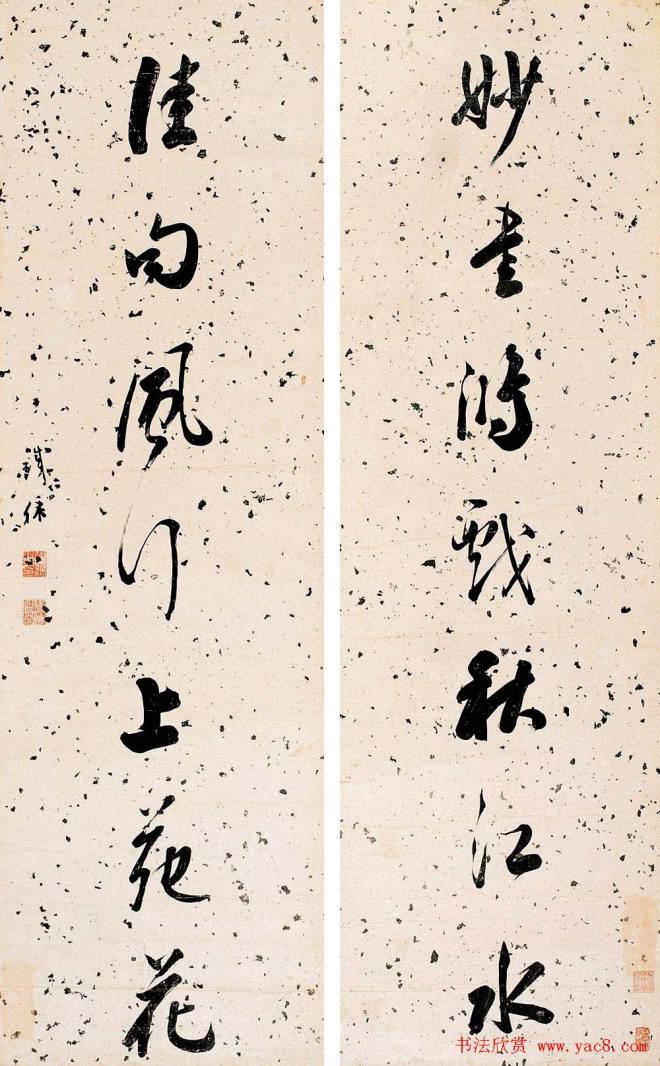 妙書鴻戲秋江水
佳句風行上苑花
鐵保
书法欣赏 www.yac8.com